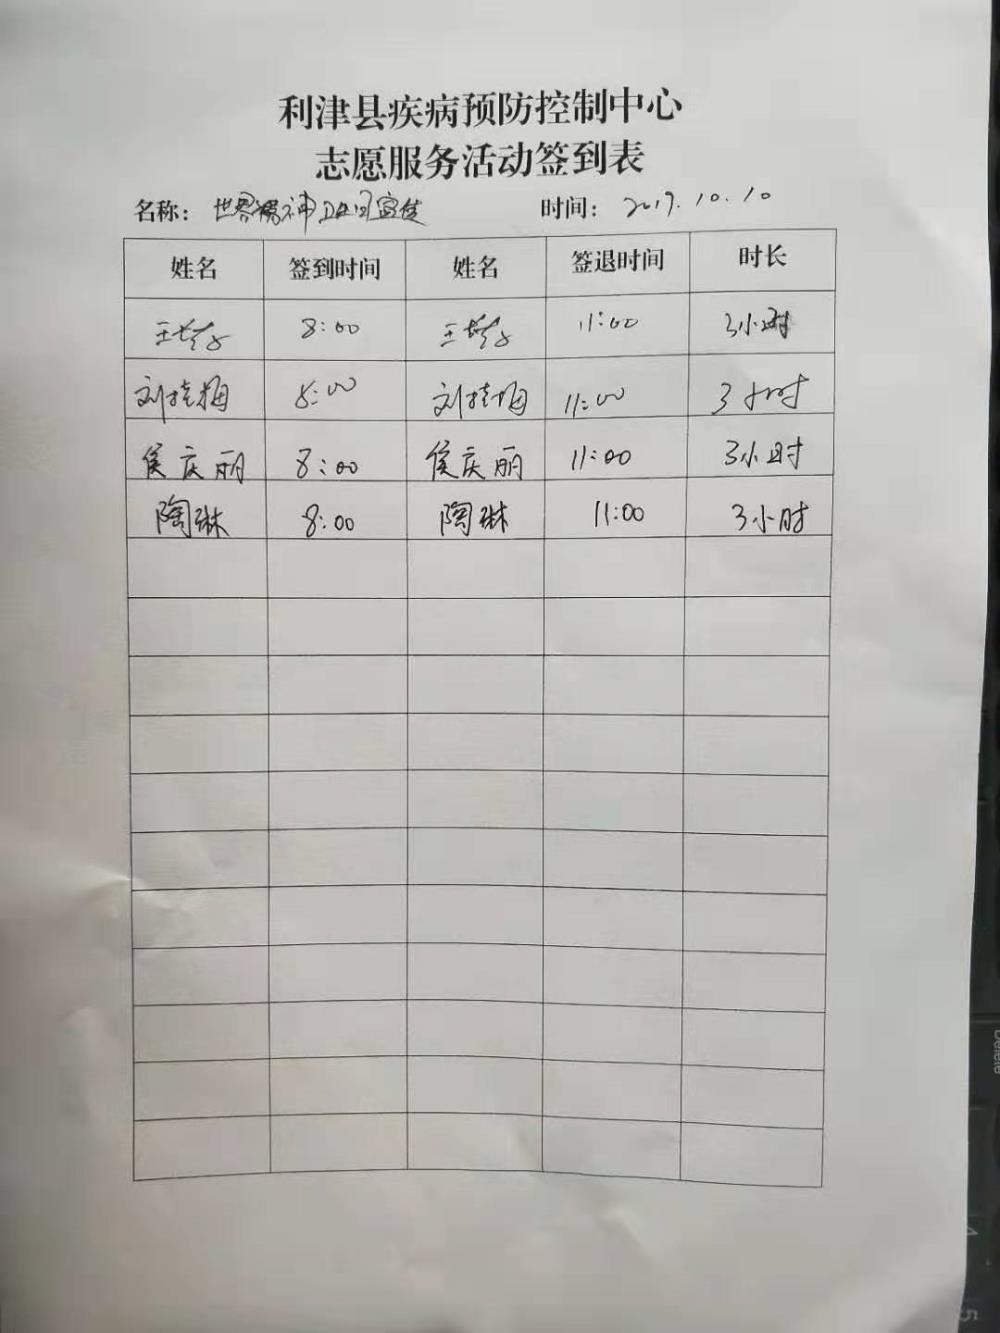 利津县疾病预防控制中心
志愿服务活动签到表
名称: 世界精神卫生日宣传 时间: 2017.10.10
姓名 签到时间 姓名 签退时间 时长
王 8:00 王 11:00 3小时
刘桂梅 8:00 刘桂梅 11:00 3小时
侯庆丽 8:00 侯庆丽 11:00 3小时
陶琳 8:00 陶琳 11:00 3小时
Delete